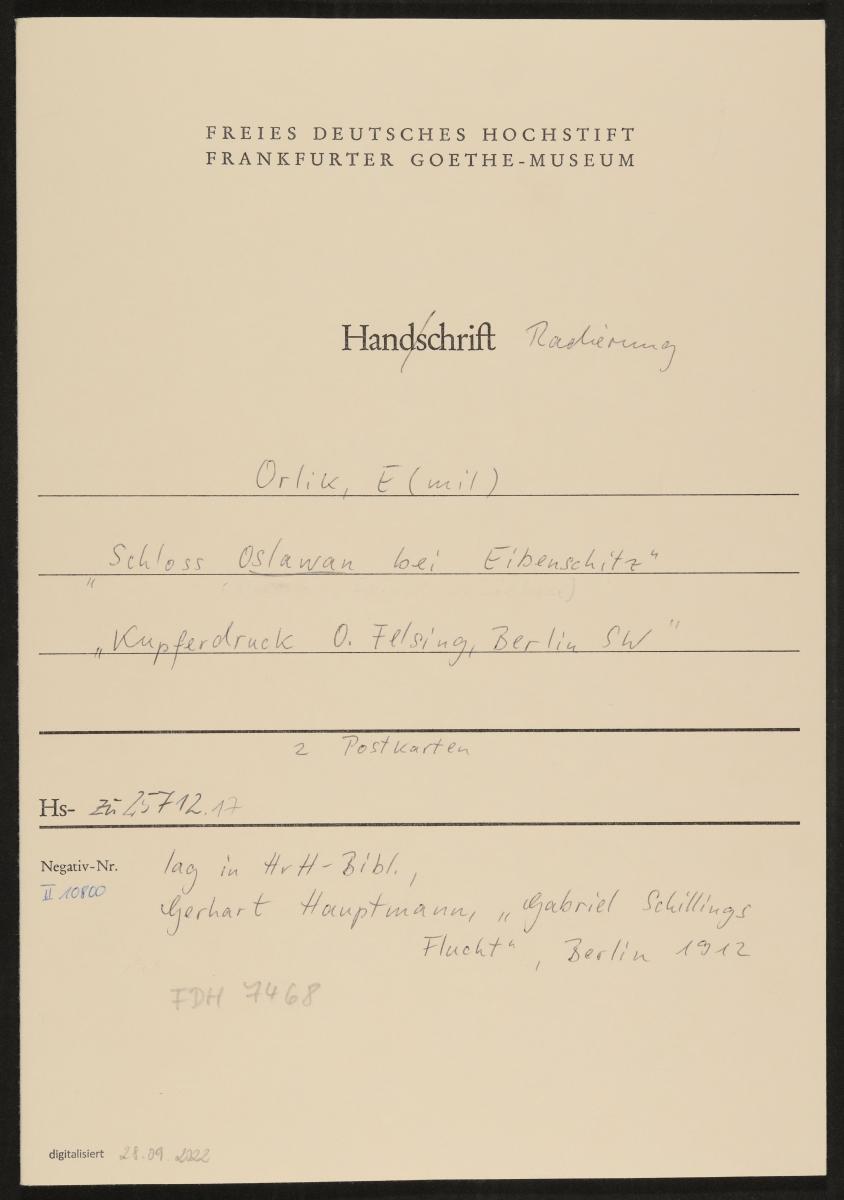 FREIES DEUTSCHES HOCHSTIFT
FRANKFURTER GOETHE-MUSEUM
Handschrift Radierung
Orlik, E(mil)
„Schloss Oslawan bei Eibenschitz“
„Kupferdruck O. Felsing, Berlin SW“
2 Postkarten
Hs- zu 25712.17
Negativ-Nr. lag in HvH-Bibl.,
II 10800
Gerhart Hauptmann, „Gabriel Schillings
Flucht“, Berlin 1912
FDH 7468
digitalisiert 28.09.2022